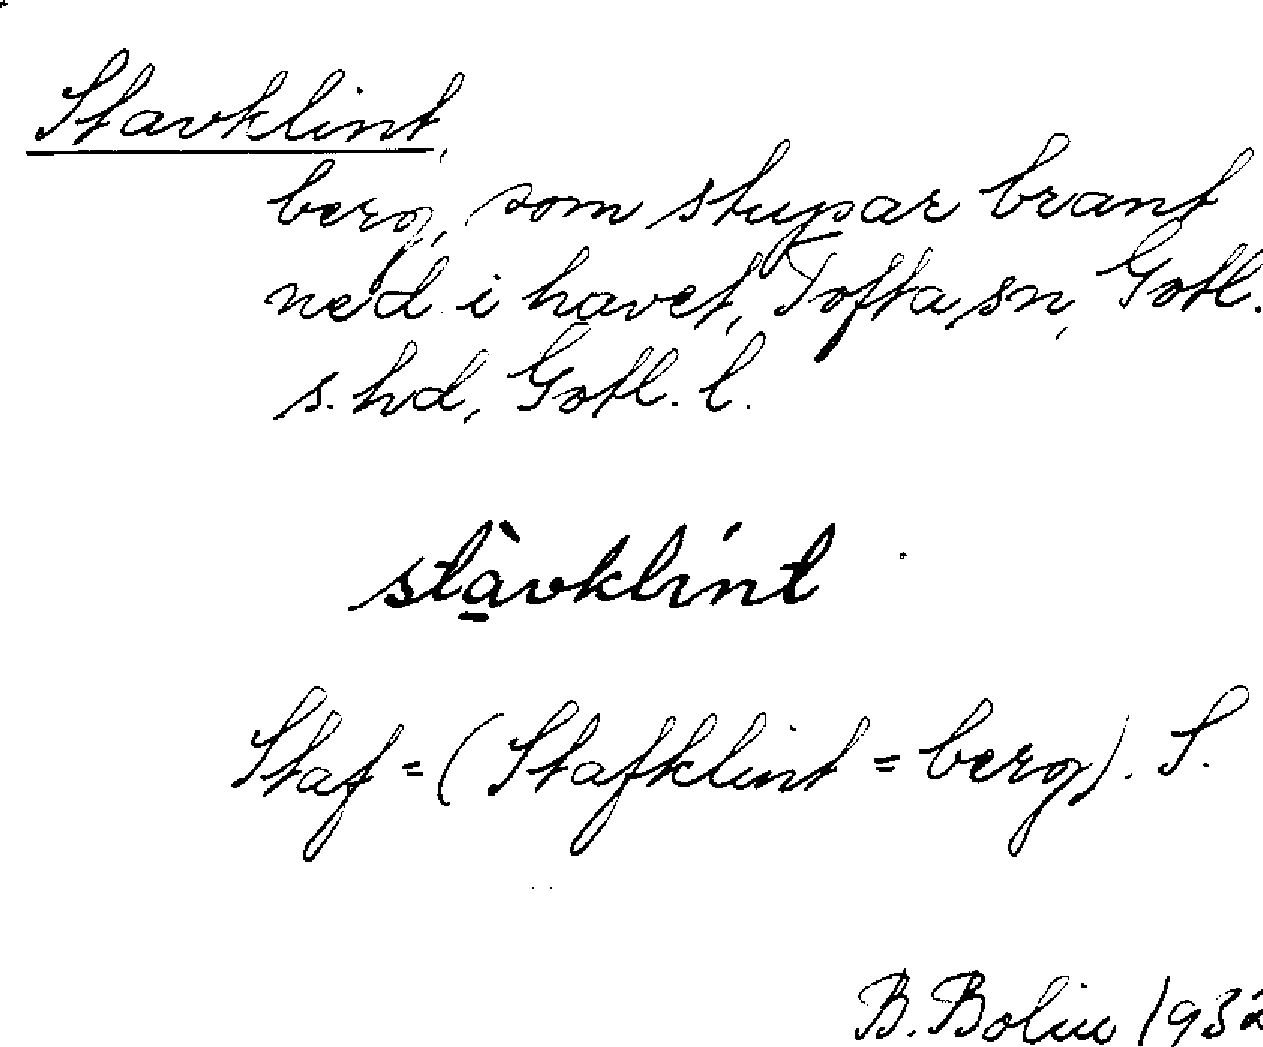 Stavklint,
berg, som stupar brant
ned i havet, Tofta sn, Gotl.
s. hd, Gotl. l.
stàvklint
Staf = (Stafklint = berg). S.
B. Bolin 1932